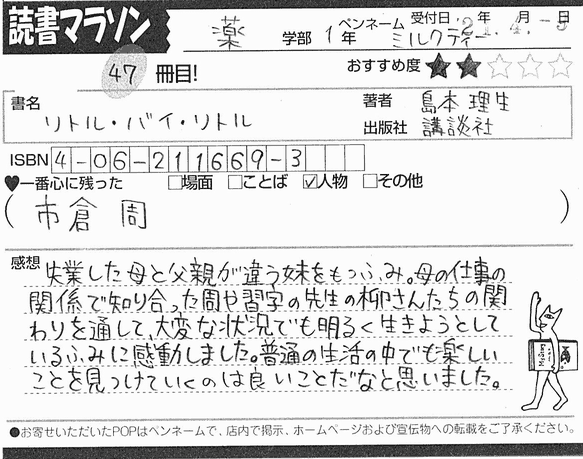 読書マラソン
薬 学部 1年 ペンネーム ミルクティー 受付日 '21年 4月 -5日
47 冊目!
おすすめ度 ★★☆☆☆
書名 リトル・バイ・リトル
著者 島本 理生
出版社 講談社
ISBN 4-06-211669-3
♥一番心に残った □場面 □ことば ☑人物 □その他
( 市倉 周 )
感想 失業した母と父親が違う妹をもつふみ。母の仕事の
関係で知り合った周や習字の先生の柳さんたちの関
わりを通して、大変な状況でも明るく生きようとして
いるふみに感動しました。普通の生活の中でも楽しい
ことを見つけていくのは良いことだなと思いました。
●お寄せいただいたPOPはペンネームで、店内で掲示、ホームページおよび宣伝物への転載をご了承ください。